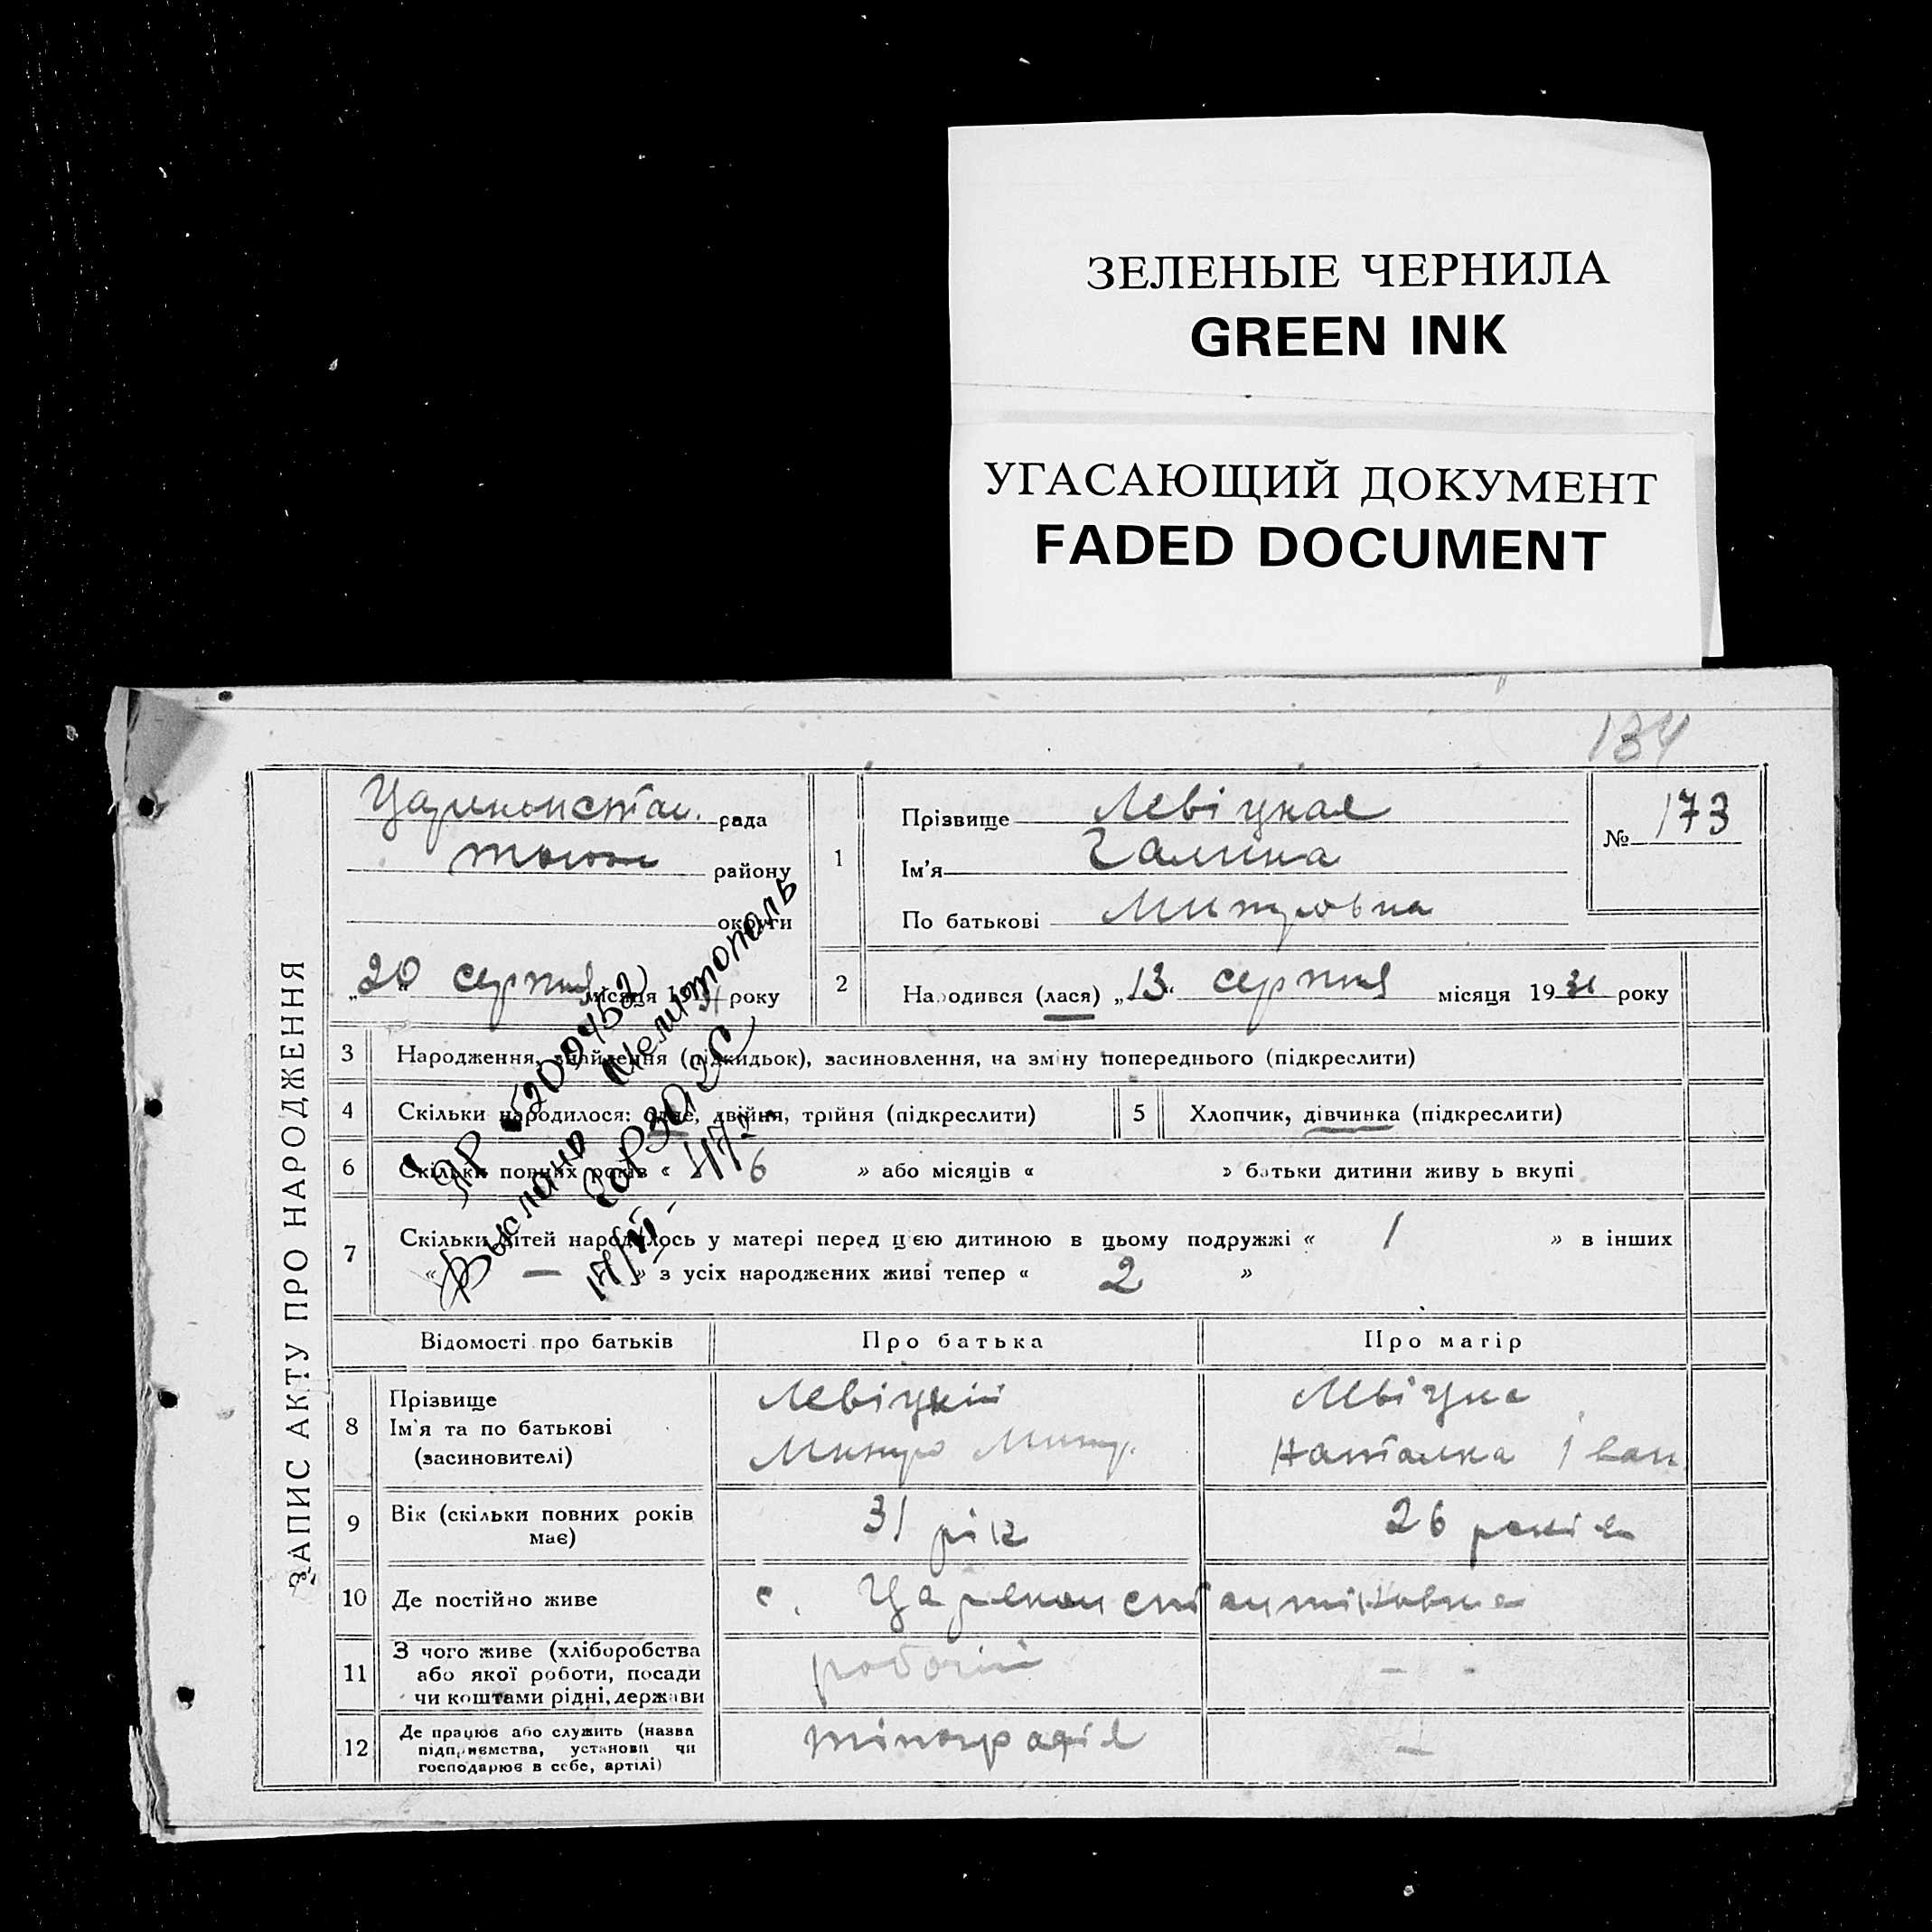 ЗЕЛЕНЫЕ ЧЕРНИЛА
GREEN INK
УГАСАЮЩИЙ ДОКУМЕНТ
FADED DOCUMENT
134
ЗАПИС АКТУ ПРО НАРОДЖЕННЯ
Цареконстан. рада
району
округи
„20“ серпня місяця 1931 року
1
Прізвище Левіцкая
Ім'я Галина
По батькові Митровна
№ 173
2
Народився (лася) „13“ серпня місяця 1931 року
3 Народження, знайдення (підкидьок), засиновлення, на зміну попереднього (підкреслити)
4 Скільки народилося: одне, двійня, трійня (підкреслити)
5 Хлопчик, дівчинка (підкреслити)
6 Скільки повних років « 6 » або місяців « » батьки дитини живуть вкупі
7 Скільки дітей народилось у матері перед цією дитиною в цьому подружжі « 1 » в інших
« — » з усіх народжених живі тепер « 2 »
ЯР 5209452
Выслано Мелитополь
горЗАГС
Відомості про батьків Про батька Про матір
8 Прізвище
Ім'я та по батькові
(засиновителі)
Левіцкій
Митро Митр.
Левіцка
Наталка Іван
9 Вік (скільки повних років
має)
31 рік
26 років
10 Де постійно живе
с. Цареконстантиновка
11 З чого живе (хліборобства
або якої роботи, посади
чи коштами рідні, держави
робочій
- -
12 Де працює або служить (назва
підприємства, установи чи
господарює в себе, артілі)
тіпографія
—